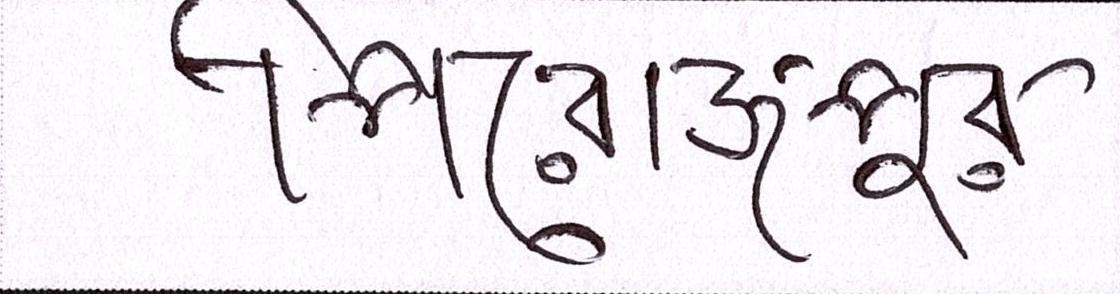 পিরোজপুর